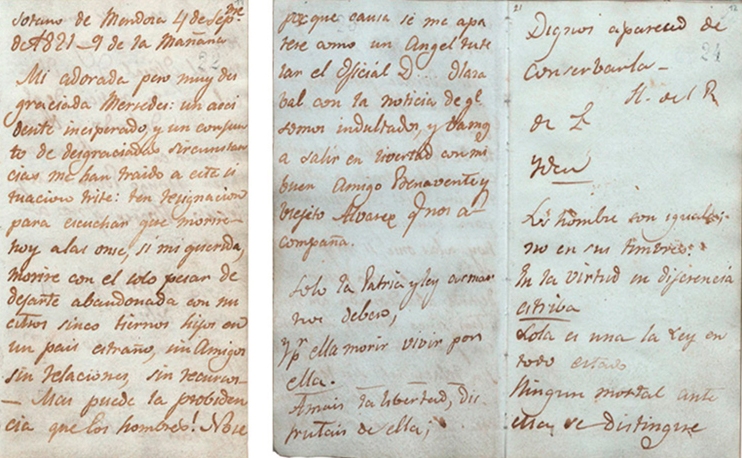 Sotano de Mendosa 4 de Sepre
de 1821_9 de la Mañana
22
Mi adorada pero muy des
graciada Mersedes: un acci
dente inesperado, y un conjun
to de desgraciadas sircunstan
cias me han traido a esta si
tuacion triste: ten resignacion
para escuchar que morire
hoy a las onse, si mi querida,
morire con el solo pesar de
dejarte abandonada con nu
estros sinco tiernos hijos en
un pais estraño, sin Amigos
sin relaciones, sin recursos_
_ Mas puede la probiden
cia que los hombres! No se
pr. que causa se me apa
rese como un Angel tute
lar el Oficial D. Olaza
val con la noticia de qe.
somos indultados, y vamos
a salir en livertad con mi
buen Amigo Benavente y
viejito Alvarez q nos a-
compaña.
Solo la Patria y ley amar
nos debeso,
Y pr. ella morir vivir por
ella.
Amais la libertad, dis
frutais de ella;
21
Dignos apareced de
Conservarla_
24
H. de l R
de L
Yden
Ls. hombre son iguales,
no en sus timbres:
En la virtud su diferencia
estriba
Sola es una la Ley en
todo estado
Ningun mortal ante
ella, se distingue